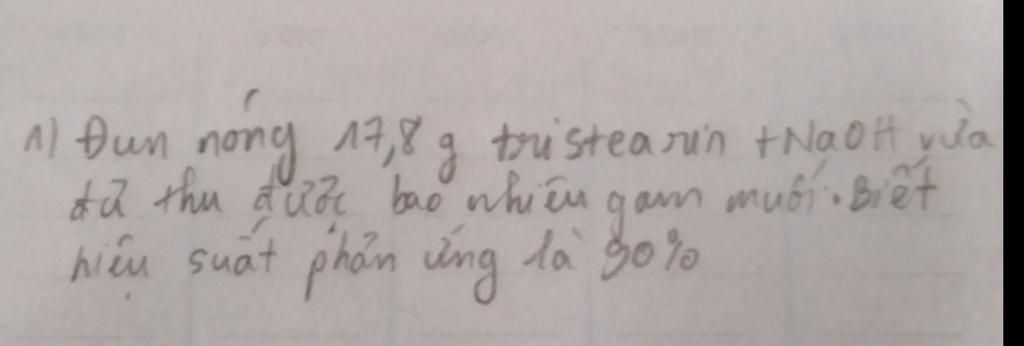 1) Đun nóng 17,8 g tristearin + NaOH vừa
đủ thu được bao nhiêu gam muối. Biết
hiệu suất phản ứng là 90%